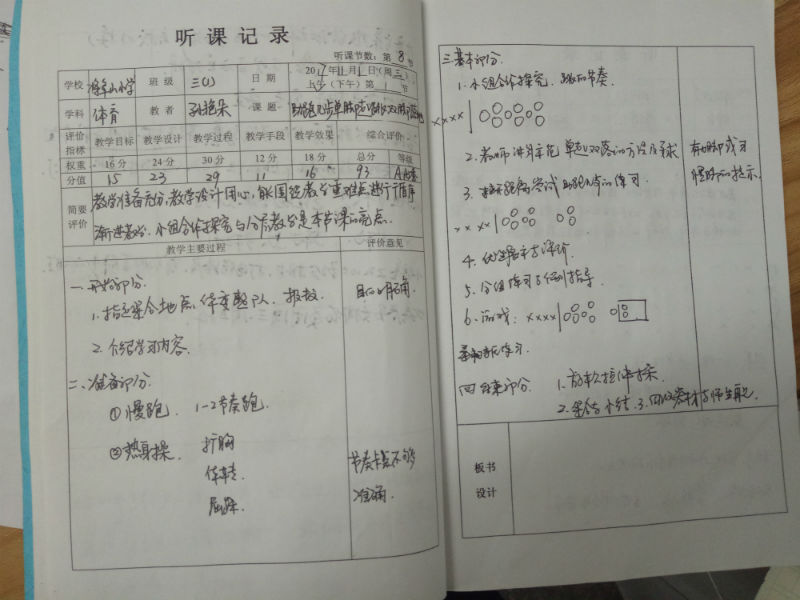 听课记录
听课节数：第 8 节
学校 小学 班级 三(1) 日期 2017年11月1日(周三)
上午(下午)第 1 节
学科 体育 教者 孙艳朵 课题 助跑几步单脚起跳双脚落地
评价指标 教学目标 教学设计 教学过程 教学手段 教学效果 综合评价
权重 16分 24分 30分 12分 18分 总分 等级
分值 15 23 29 11 16 93 A
简要评价 教学准备充分，教学设计用心，能围绕教学重难点进行循序
渐进教学，小组合作探究与分层教学是本节课的亮点。
教学主要过程 评价意见
一、开始部分.
1.指定集合地点，体委整队，报数. 目的明确
2.介绍学习内容.
二、准备部分.
①慢跑. 1-2节奏跑.
②热身操. 扩胸
体转
屈踝.
节奏卡点不够
准确.
三、基本部分.
1.小组合作探究，跳的节奏.
xxxx
2.教师讲解示范 单起双落的方法及要求
有地脚或可
慢时的提示.
3. 尝试助跑几步的练习.
xx xx
4.优生展示与评价.
5.分组练习与个别指导.
6.游戏: xxxx
练习.
四、结束部分. 1.放松拉伸操.
2.集合小结. 3.回收器材与师生再见.
板书设计